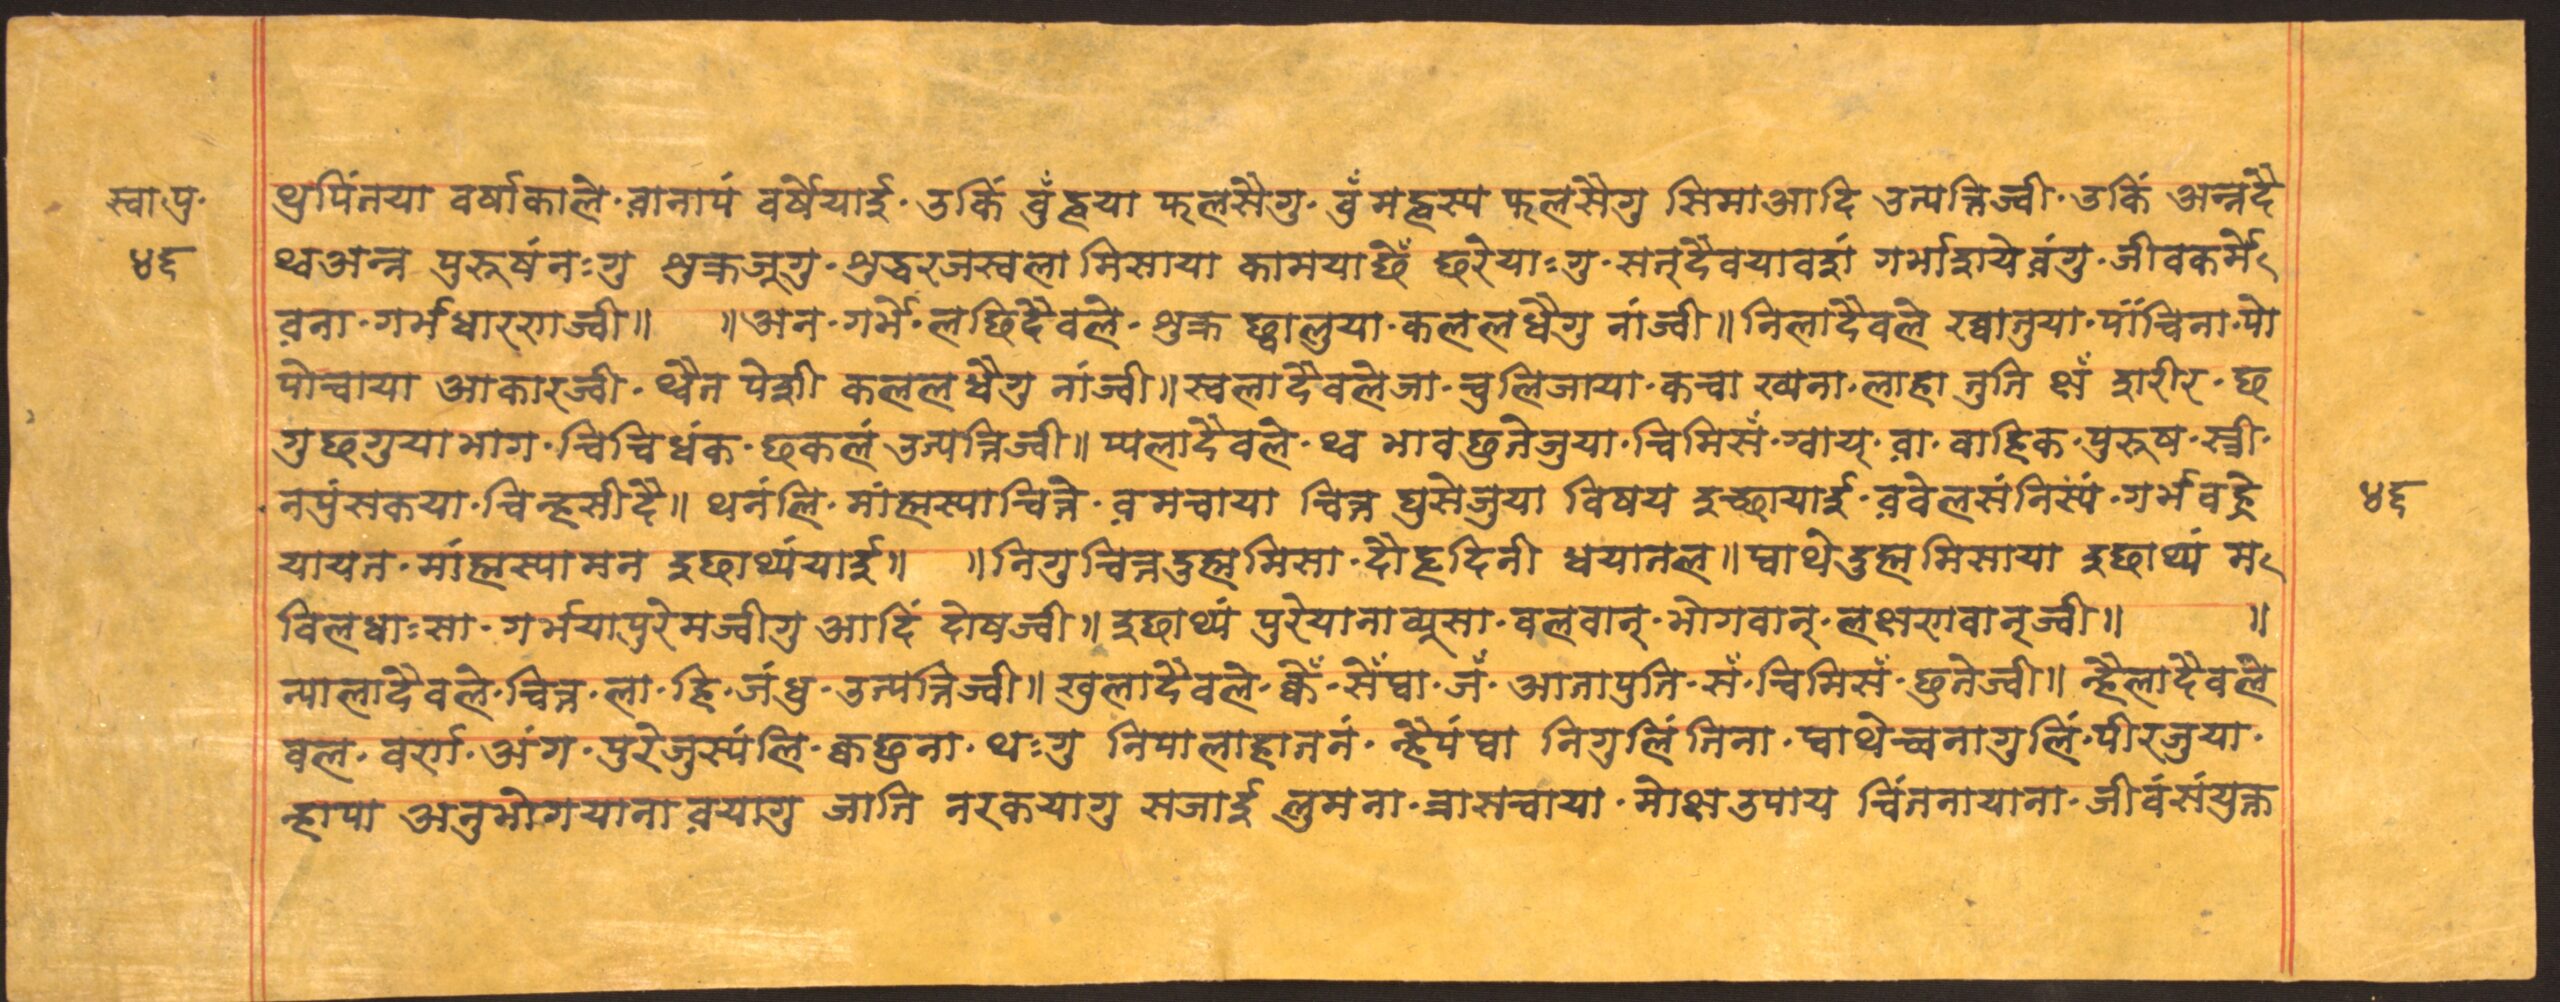 स्वा.पु.
४६
थुपिंतया वर्षाकाले.वानापं वर्षेयाई.उकिं वुँह्वया फलसैगु.वुँमह्वस्य फलसैगु सिमाआदि उत्पत्तिज्वी.उकिं अन्नदै
थ्वअन्न पुरुषंनःगु शुक्रजूगु.शुद्धरजस्वला मिसाया कामयाछेँ छरेयाःगु.सत्दैवयावशं गर्भाशयेवंगु.जीवकर्मे
वना.गर्भधारणज्वी॥ ॥अन.गर्भे.लछिदैवले.शुक्र छ्वालुया.कललधैगु नांज्वी॥निलादैवले ख्वातुया.पांचिना.पो
पोन्चाया आकारज्वी.थ्वैत पेशी कललधैगु नांज्वी॥स्वलादैवलेजा.चुलिजाया.कचा ख्यना.लाहा तुति थेँ शरीर.छ
गुछगुयाभाग.चिचिधंक.छकलं उत्पत्तिज्वी॥प्यलादैवले.थ्व भावछुतेजुया.चिमिसँ.ग्वाय्.वा.वाहिक.पुरुष.स्त्री.
नपुंसकया.चिन्हसीदै॥थनंलि.मांह्मस्याचित्ते.वमचाया चित्त घुसेजुया विषय इच्छायाई.ववेलसंनिस्यं.गर्भवह्रे
यायत.मांह्मस्यामन इछाथ्यंयाई॥ ॥निगुचित्तदुह्ममिसा.दौहृदिनी धयातल॥प्वाथेदुह्ममिसाया इछाथ्यं म
विलधाःसा.गर्भयापुरेमज्वीगु आदिं दोषज्वी॥इछाथ्यं पुरेयानाव्यूसा.बलवान्.भोगवान्.लक्षणवान्ज्वी॥ ॥
न्यालादैवले.चित्त.ला.हि.जंधु.उत्पत्तिज्वी॥खुलादैवले.क्वेँ.सेँप्वा.जँ.आतापुति.सँ.चिमिसँ.छुतेज्वी॥न्हैलादैवले
बल.वर्ण.अंग.पुरेजुस्यंलि.क्वछुना.थःगु निपालाहातनं.न्हैपंप्वा निगुलिं तिना.प्वाथेच्वनागुलिं.पीरजुया.
न्हापा अनुभोगयाना वयागु जाति नरकयागु सजाई लुमना.त्रासचाया.मोक्षउपाय चिंतनायाना.जीवंसंयुक्त
४६